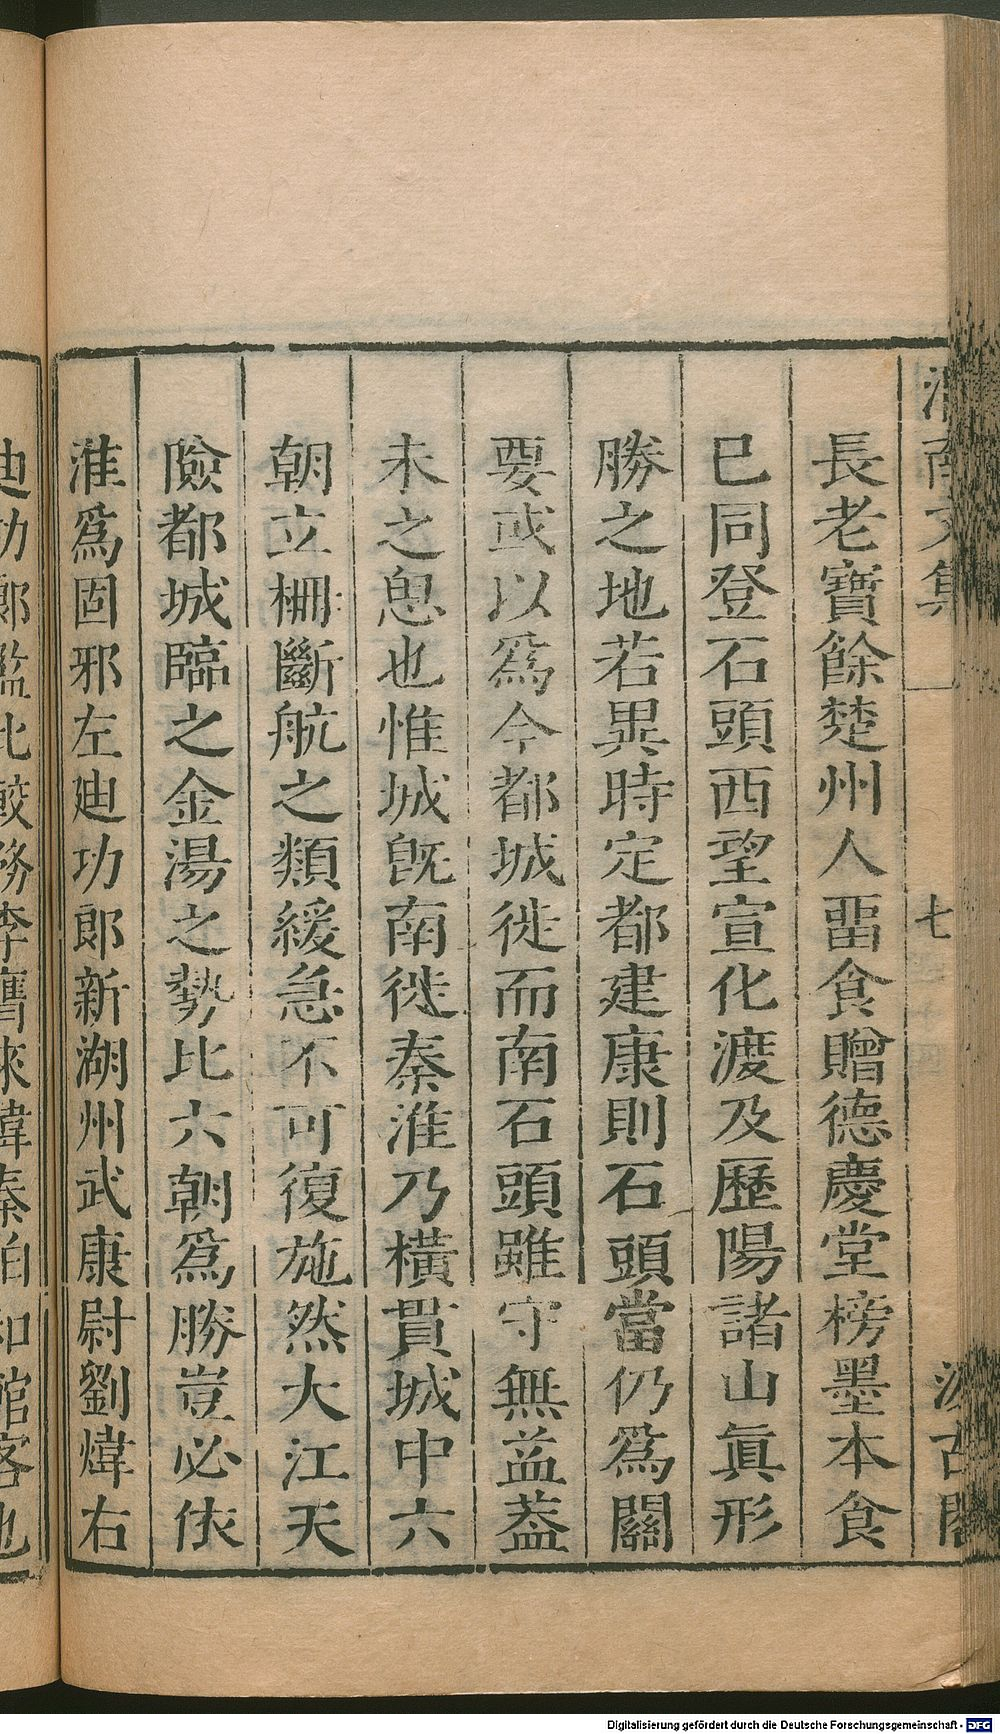 南文集
七
古閣
長老寶餘楚州人畱食贈德慶堂榜墨本食
已同登石頭西望宣化渡及歷陽諸山眞形
勝之地若異時定都建康則石頭當仍爲關
要或以爲今都城徙而南石頭雖守無益葢
未之思也惟城旣南徙秦淮乃橫貫城中六
朝立柵斷航之類緩急不可復施然大江天
險都城臨之金湯之勢比六朝爲勝豈必依
淮爲固邪左廸功郎新湖州武康尉劉煒右
廸功郎監比較務李膺來煒秦伯和館客也
Digitalisierung gefördert durch die Deutsche Forschungsgemeinschaft - DFG